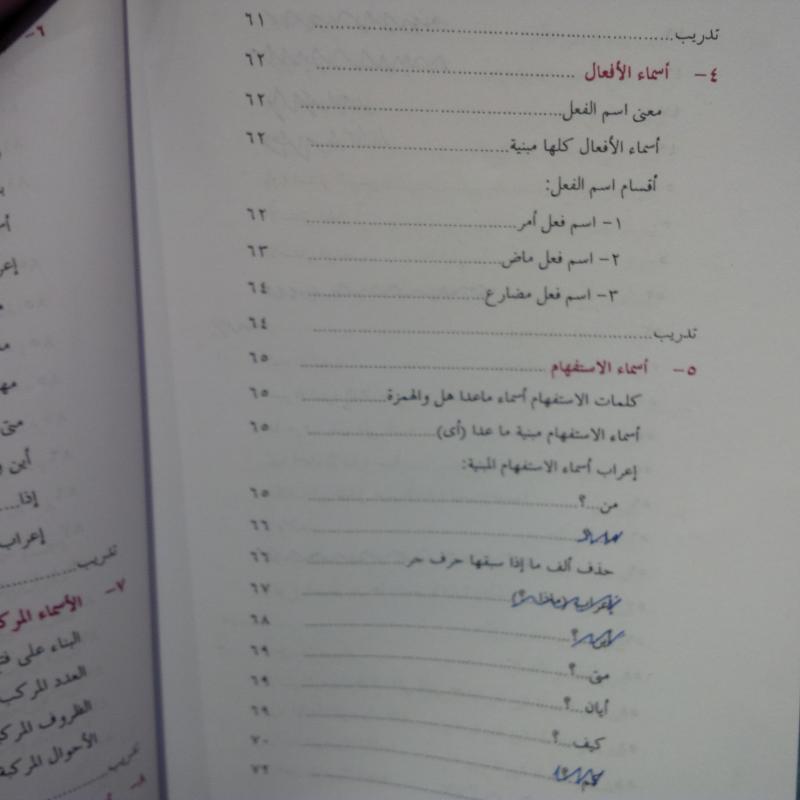 تدريب ........ ٦١
٤- أسماء الأفعال ........ ٦٢
معنى اسم الفعل ........ ٦٢
أسماء الأفعال كلها مبنية ........ ٦٢
أقسام اسم الفعل:
١- اسم فعل أمر ........ ٦٢
٢- اسم فعل ماض ........ ٦٣
٣- اسم فعل مضارع ........ ٦٤
تدريب ........ ٦٤
٥- أسماء الاستفهام ........ ٦٥
كلمات الاستفهام أسماء ماعدا هل والهمزة ........ ٦٥
أسماء الاستفهام مبنية ما عدا (أى) ........ ٦٥
إعراب أسماء الاستفهام المبنية:
من...؟ ........ ٦٥
........ ٦٦
حذف ألف ما إذا سبقها حرف جر ........ ٦٦
إعراب (ماذا ؟) ........ ٦٧
أين...؟ ........ ٦٨
متى...؟ ........ ٦٩
أيان...؟ ........ ٦٩
كيف...؟ ........ ٦٩
كم...؟ ........ ٧٠
٧٢
٦-
متى
أين
إذا...
إعراب
تدريب
٧- الأسماء
البناء على
العدد
الظروف
الأحوال
تدريب
٨-